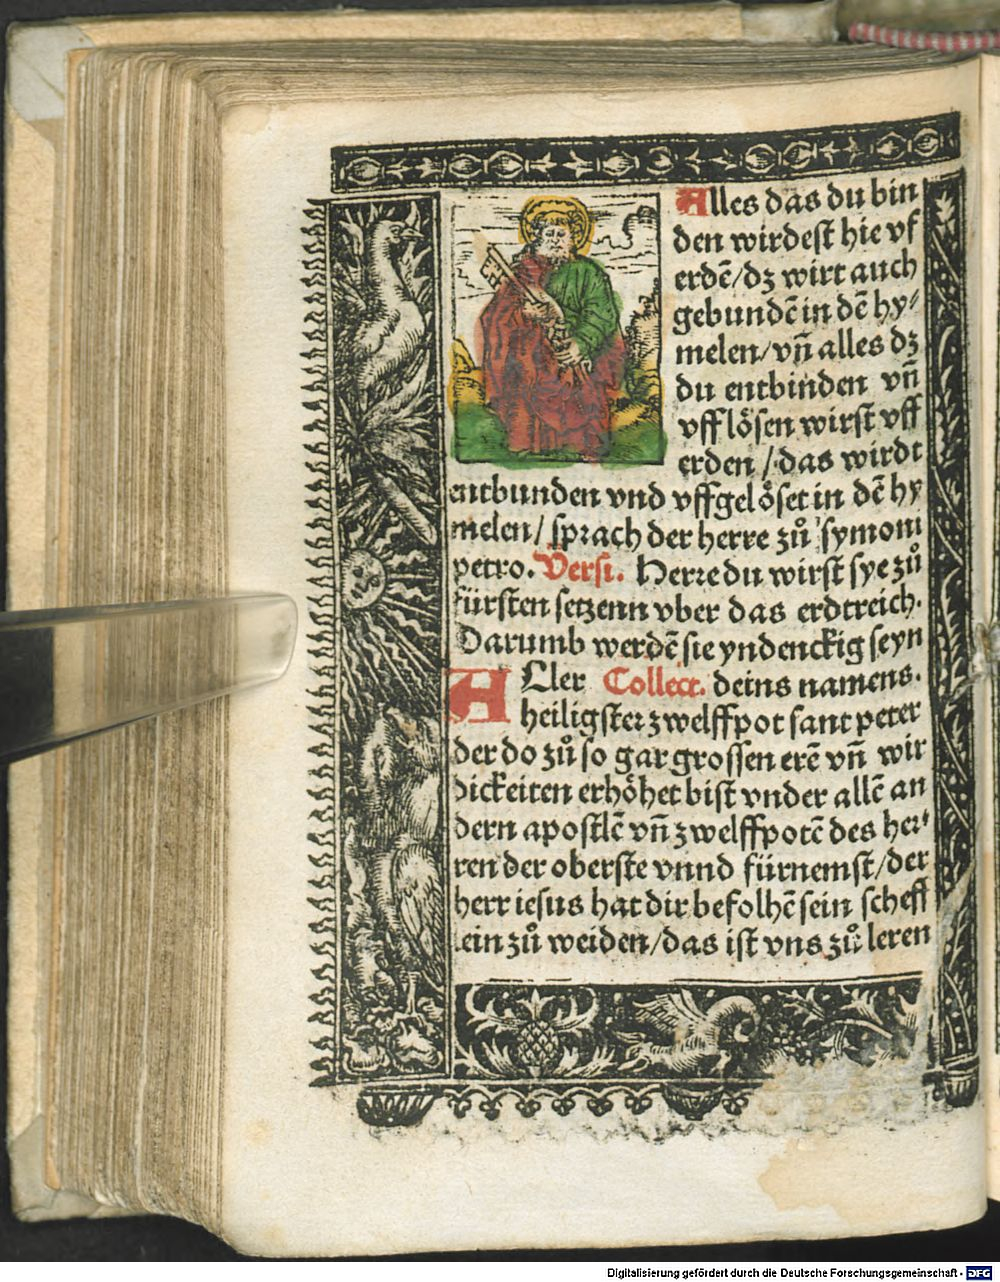 Alles das du bin
den wirdest hie vf
erdē/dz wirt auch
gebundē in dē hy⸗
melen/vñ alles dz
du entbinden vñ
vfflösen wirst vff
erden/das wirdt
entbunden vnd vffgelöset in dē hy
melen/ sprach der herre zů symoni
petro. Versi. Herre du wirst sye zů
fürsten setzenn vber das erdtreich.
Darumb werdē sie yndenckig seyn
ALler Collect. deins namens.
heiligster zwelffpot sant peter
der do zů so gar grossen erē vñ wir
dickeiten erhöhet bist vnder allē an
dern apostlē vñ zwelffpotē des her⸗
ren der oberste vnnd fürnemst/der
herr iesus hat dir befolhē sein scheff
lein zů weiden/das ist vns zů leren
Digitalisierung gefördert durch die Deutsche Forschungsgemeinschaft - DFG